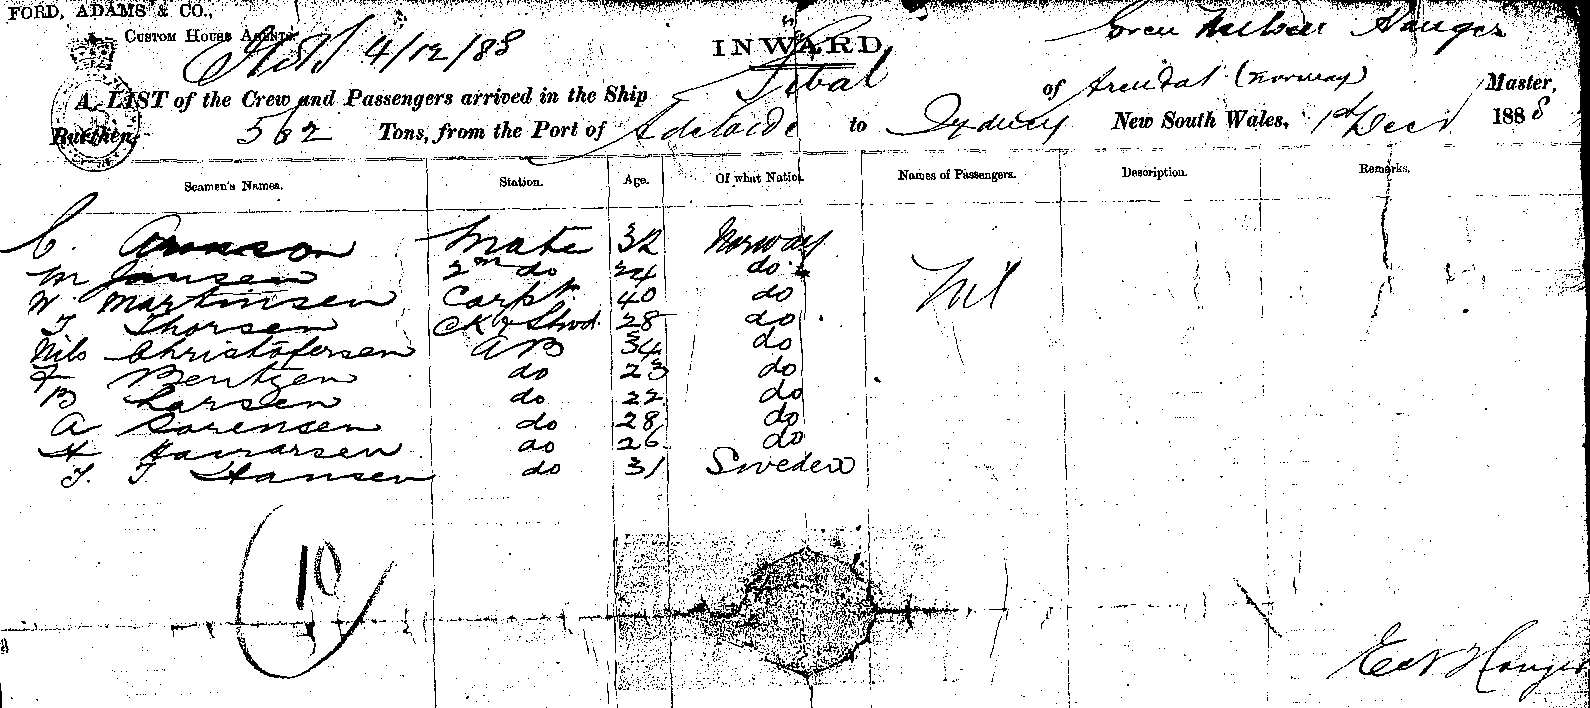 FORD, ADAMS & CO.,
CUSTOM HOUSE AGENTS.
4/12/88
INWARD
Hauger
A LIST of the Crew and Passengers arrived in the Ship Tibal of Arendal (Norway) Master,
Burthen, 562 Tons, from the Port of Adelaide to Sydney New South Wales, 1st Decr 1888
Seamen's Names. Station. Age. Of what Nation. Names of Passengers. Description. Remarks.
C. Mate 32 Norway
M Jansen 2nd do 24 do
W. Martinsen Carptr 40 do Nil
T Thorsen CK & Stwd. 28 do
Nils Christofersen AB 34 do
F Bentzen do 23 do
B Larsen do 22 do
A Sorensen do 28 do
H do 26 do
T. T Hansen do 31 Sweden
10
Hauger